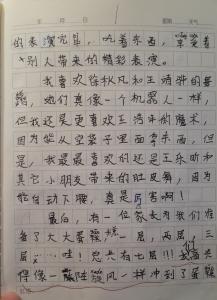 的表演完毕，吃着东西，享受着
别人带来的精彩表演。
我喜欢徐枫凡和王清祥的舞
蹈，她们真像一个机器人一样，
但我还是更喜欢王清祥的魔术，
因为能从空袋子里面拿东西，但
是，我最最喜欢的还是王乐昕和
其它小朋友带来的肚皮舞，因为
能自动下腰，真是厉害啊！
最后，有一位家长为我们准
备了大大蛋糕，一层，两层，三
层……哇！总共有七层！！！我
像一阵旋风一样冲到了蛋糕